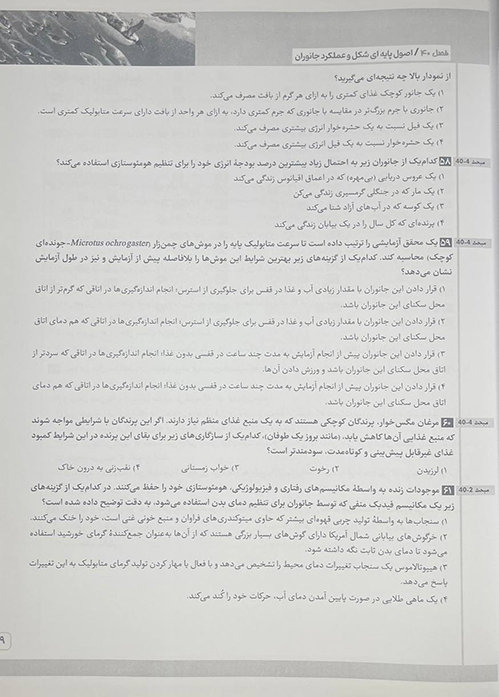 فصل ۴۰ / اصول پایه ای شکل و عملکرد جانوران
از نمودار بالا چه نتیجه‌ای می‌گیرید؟
۱) یک جانور کوچک غذای کمتری را به ازای هر گرم از بافت مصرف می‌کند.
۲) جانوری با جرم بزرگ‌تر در مقایسه با جانوری که جرم کمتری دارد، به ازای هر واحد از بافت دارای سرعت متابولیک کمتری است.
۳) یک فیل نسبت به یک حشره‌خوار انرژی بیشتری مصرف می‌کند.
۴) یک حشره‌خوار نسبت به یک فیل انرژی بیشتری مصرف می‌کند.
مبحث 4-40 ۵۸ کدام‌یک از جانوران زیر به احتمال زیاد بیشترین درصد بودجهٔ انرژی خود را برای تنظیم هومئوستازی استفاده می‌کند؟
۱) یک عروس دریایی (بی‌مهره) که در اعماق اقیانوس زندگی می‌کند
۲) یک مار که در جنگلی گرمسیری زندگی می‌کن
۳) یک کوسه که در آب‌های آزاد شنا می‌کند
۴) پرنده‌ای که کل سال را در یک بیابان زندگی می‌کند
مبحث 4-40 ۵۹ یک محقق آزمایشی را ترتیب داده است تا سرعت متابولیک پایه را در موش‌های چمن‌زار (Microtus ochrogaster-جونده‌ای
کوچک) محاسبه کند. کدام‌یک از گزینه‌های زیر بهترین شرایط این موش‌ها را بلافاصله پیش از آزمایش و نیز در طول آزمایش
نشان می‌دهد؟
۱) قرار دادن این جانوران با مقدار زیادی آب و غذا در قفس برای جلوگیری از استرس؛ انجام اندازه‌گیری‌ها در اتاقی که گرم‌تر از اتاق
محل سکنای این جانوران باشد.
۲) قرار دادن این جانوران با مقدار زیادی آب و غذا در قفس برای جلوگیری از استرس؛ انجام اندازه‌گیری‌ها در اتاقی که هم دمای اتاق
محل سکنای این جانوران باشد.
۳) قرار دادن این جانوران پیش از انجام آزمایش به مدت چند ساعت در قفسی بدون غذا؛ انجام اندازه‌گیری‌ها در اتاقی که سردتر از
اتاق محل سکنای این جانوران باشد و ورزش دادن آن‌ها.
۴) قرار دادن این جانوران پیش از انجام آزمایش به مدت چند ساعت در قفسی بدون غذا؛ انجام اندازه‌گیری‌ها در اتاقی که هم دمای
اتاق محل سکنای این جانوران باشد.
مبحث 4-40 ۶۰ مرغان مگس‌خوار، پرندگان کوچکی هستند که به یک منبع غذای منظم نیاز دارند. اگر این پرندگان با شرایطی مواجه شوند
که منبع غذایی آن‌ها کاهش یابد، (مانند بروز یک طوفان)، کدام‌یک از سازگاری‌های زیر برای بقای این پرنده در این شرایط کمبود
غذای غیرقابل پیش‌بینی و کوتاه‌مدت، سودمندتر است؟
۱) لرزیدن ۲) رخوت ۳) خواب زمستانی ۴) نقب‌زنی به درون خاک
مبحث 2-40 ۶۱ موجودات زنده به واسطهٔ مکانیسم‌های رفتاری و فیزیولوژیکی، هومئوستازی خود را حفظ می‌کنند. در کدام‌یک از گزینه‌های
زیر یک مکانیسم فیدبک منفی که توسط جانوران برای تنظیم دمای بدن استفاده می‌شود، به دقت توضیح داده شده است؟
۱) سنجاب‌ها به واسطهٔ تولید چربی قهوه‌ای بیشتر که حاوی میتوکندری‌های فراوان و منبع خونی غنی است، خود را خنک می‌کنند.
۲) خرگوش‌های بیابانی شمال آمریکا دارای گوش‌های بسیار بزرگی هستند که از آن‌ها به‌عنوان جمع‌کنندهٔ گرمای خورشید استفاده
می‌شود تا دمای بدن ثابت نگه داشته شود.
۳) هیپوتالاموس یک سنجاب تغییرات دمای محیط را تشخیص می‌دهد و با فعال یا مهار کردن تولید گرمای متابولیک به این تغییرات
پاسخ می‌دهد.
۴) یک ماهی طلایی در صورت پایین آمدن دمای آب، حرکات خود را کُند می‌کند.
۹